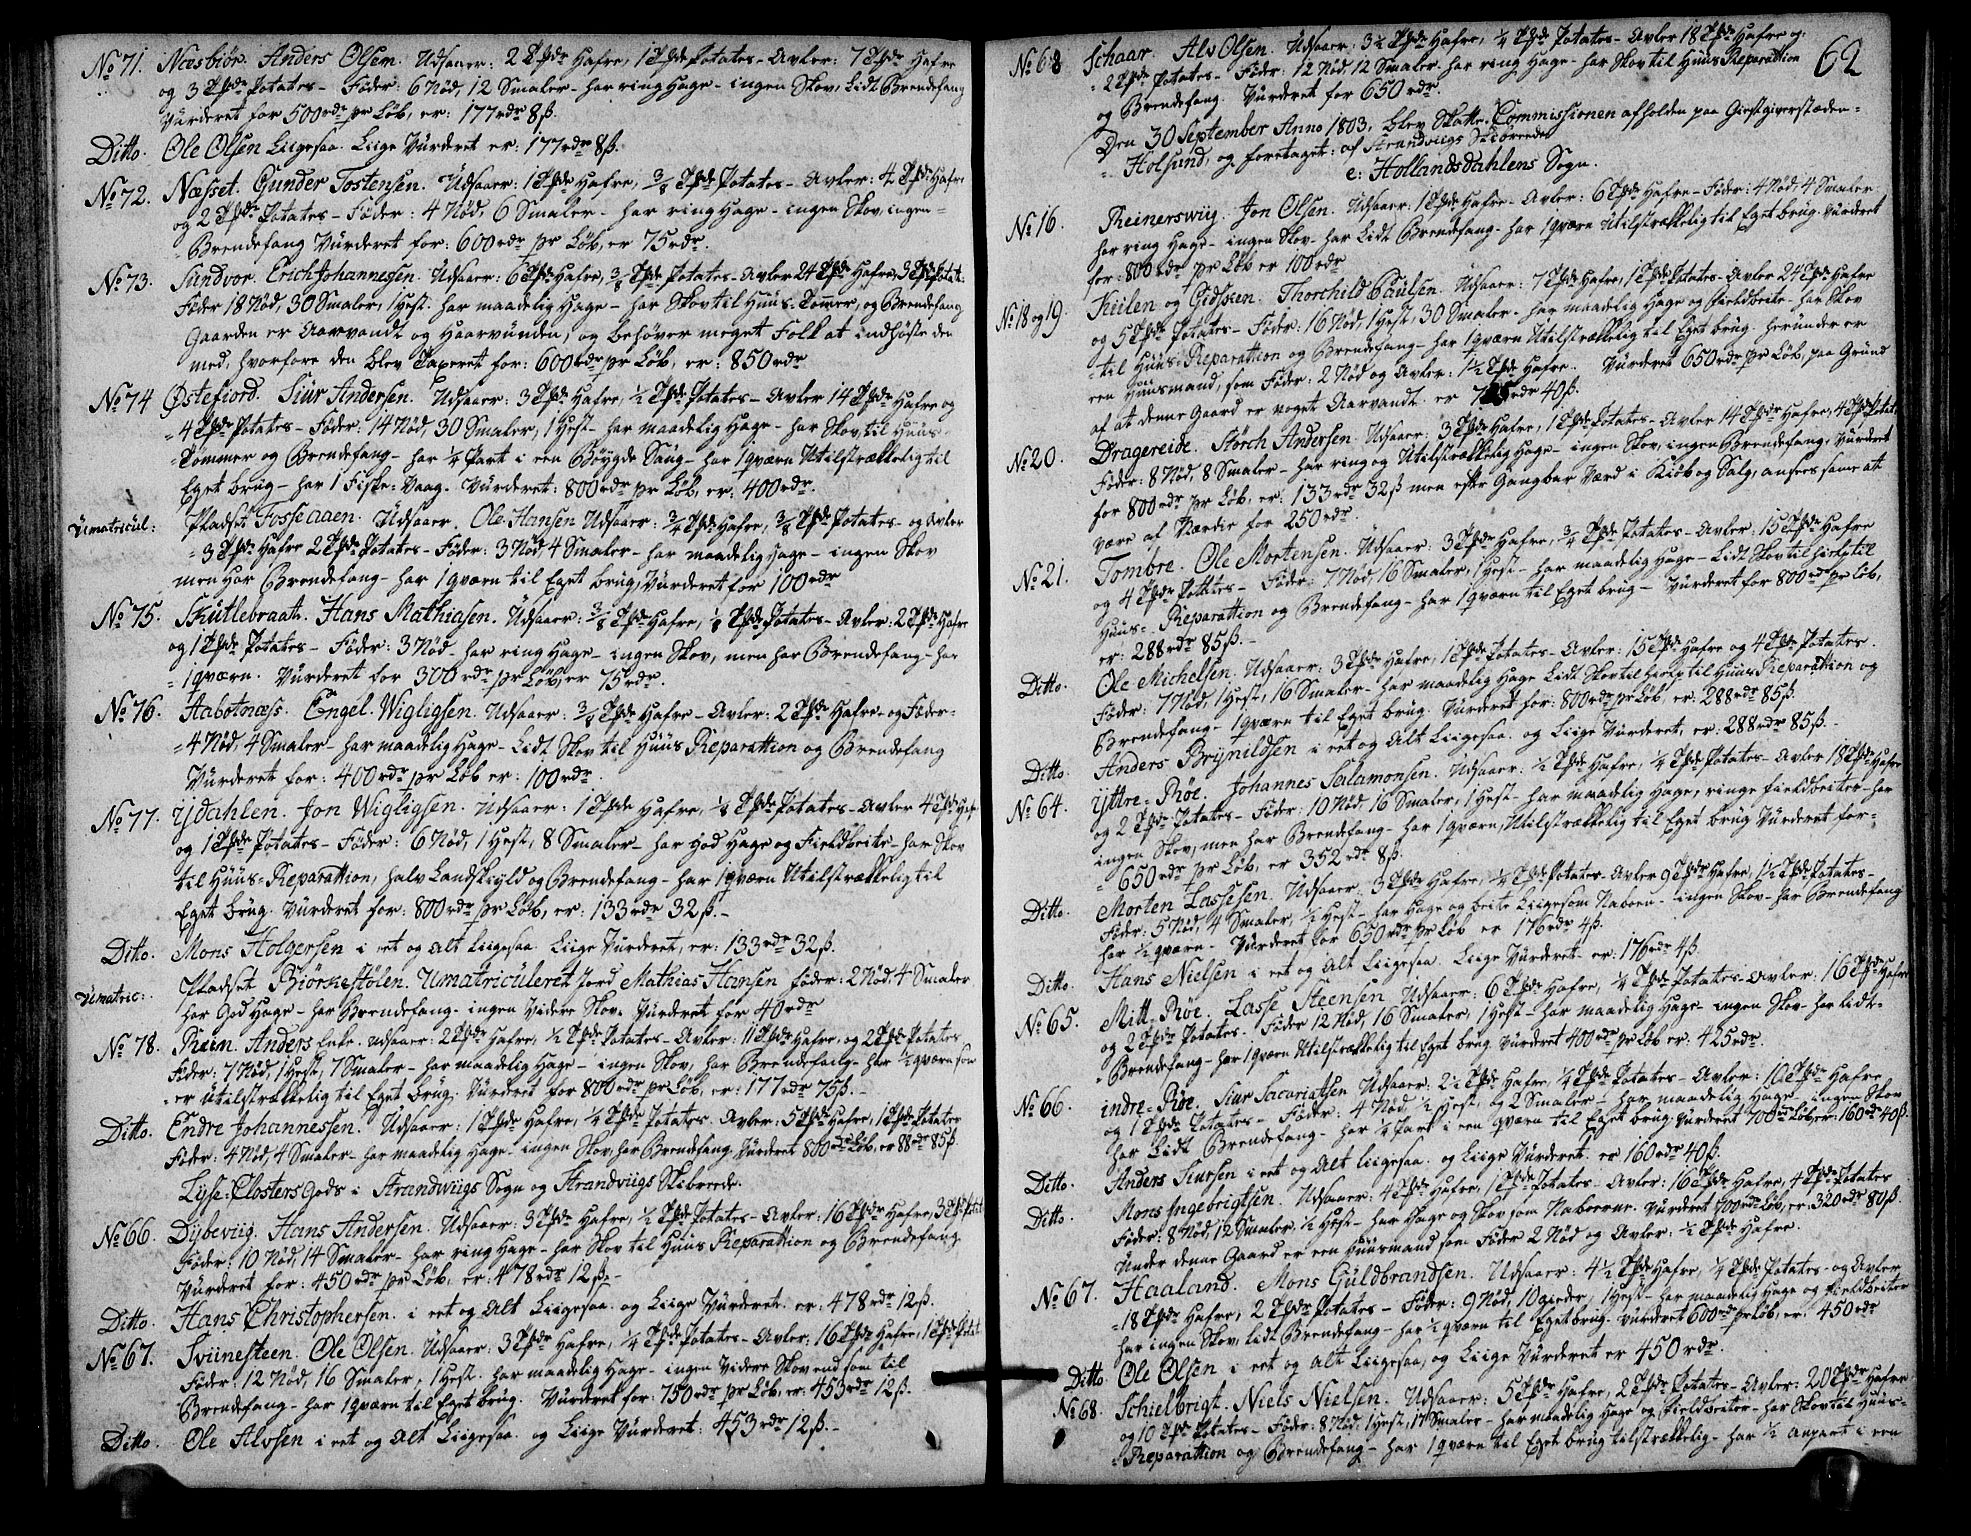 No 71. Næsbiør. Anders Olsen. Udsaaer: 2 Tpde Hafre, 1 Tpde Potates – Avler: 7 Tpde Hafre
og 3 Tpde Potates – Føder: 6 Nød, 12 Smaler – har ring Hage – ingen Skov, Lidt Brendefang
Vurderet for 500 rdr pr Løb, er: 177 rdr 8 ß.
Ditto. Ole Olsen Liigesaa. Liige Vurderet er: 177 rdr 8 ß.
No 72. Næsset. Gunder Tostensen. Udsaaer: 1 Tpde Hafre, 3/8 Tpde Potates – Avler: 4 Tpde Hafre
og 2 Tpde Potates – Føder: 4 Nød, 6 Smaler – har ring Hage – ingen Skov, ingen =
= Brendefang Vurderet for: 600 rdr pr Løb, er 75 rdr.
No 73. Sundvor. Erich Johannesen. Udsaaer: 6 Tpde Hafre, 3/8 Tpde Potates – Avler 24 Tpde Hafre, 3 Tpde Potat:
Føder 18 Nød, 30 Smaler, 1 Hest. har maadelig Hage – har Skov til Huus-Tømmer, og Brendefang
Gaarden er Aarvandt og Haarvunden, og behøver meget Folk at indhøste den
med, hvorfore den blev Taxeret for: 600 rdr pr Løb, er: 850 rdr
No 74 Østefiord. Siur Andersen. Udsaaer: 3 Tpde Hafre, 1/2 Tpde Potates – Avler 14 Tpde Hafre og
= 4 Tpde Potates – Føder: 14 Nød, 30 Smaler, 1 Hest – har maadelig Hage – har Skov, til Huus-
Tømmer og Brendefang – har 1/4 Part i een Bøygde Saug – har 1 qværn Utilstrækkelig til
Eget brug – har 1 Fiske-Vaag. Vurderet: 800 rdr pr Løb, er: 400 rdr.
Umatricul: Pladset Fosseaaen. Udsaaer. Ole Hansen Udsaaer: 3/4 Tpde Hafre, 3/8 Tpde Potates – og Avler
= 3 Tpde Hafre 2 Tpde Potates – Føder: 3 Nød, 4 Smaler – har maadelig Hage – ingen Skov
men har Brendefang – har 1 qværn til Eget brug, Vurderet for 100 rdr
No 75. Skutlebraath. Hans Mathiasen. Udsaaer: 3/8 Tpde Hafre, 1/8 Tpde Potates – Avler: 2 Tpde Hafre
og 1 Tpde Potates – Føder: 3 Nød – har ring Hage – ingen Skov, men har Brendefang – har
= 1 qværn. Vurderet for 300 rdr pr Løb, er 75 rdr.
No 76. Aabotnæss. Engel Wigligsen. Udsaaer: 3/8 Tpde Hafre – Avler: 2 Tpde Hafre – og Føder =
= 4 Nød, 4 Smaler – har maadelig Hage – Lidt Skov til Huus Reparattion og Brendefang
Vurderet for: 400 rdr pr Løb er: 100 rdr.
No 77. Ydahlen. Jon Wigligsen. Udsaaer: 1 Tpde Hafre, 1/8 Tpde Potates – Avler 4 Tpde Hafre
og 1 Tpde Potates – Føder: 6 Nød, 1 Hest, 8 Smaler – har god Hage og Fieldbeite – har Skov
til Huus-Reparattion, halv Landskyld og Brendefang – har 1 qværn Utilstrækkelig til
Eget brug. Vurderet for: 800 rdr pr Løb, er: 133 rdr 32 ß. –
Ditto. Mons Holgersen i eet og alt Liigesaa. Liige Vurderet, er: 133 rdr 32 ß.
Umatric: Pladset Biørnestølen. Umatriculeret Jord Mathias Hansen Føder: 2 Nød, 4 Smaler
har god Hage – har Brendefang – ingen Videre Skov. Vurderet for 40 rdr
No 78. Reim. Anders Enke. Udsaaer: 2 Tpde Hafre, 1/2 Tpde Potates – Avler: 11 Tpde Hafre, og 2 Tpde Potates
Føder: 7 Nød, 1 Hest, 7 Smaler – har maadelig Hage – ingen Skov, har Brendefang – har 1/2 qværn som
= er Utilstrækkelig til Eget brug. Vurderet for 800 rdr pr Løb, er: 177 rdr 75 ß. –
Ditto. Endre Johannessen. Udsaaer: 1 Tpde Hafre, 1/4 Tpde Potates – Avler: 5 Tpde Hafre, 1 Tpde Potates
Føder: 4 Nød, 4 Smaler – har maadelig Hage – ingen Skov, har Brendefang Vurderet 800 rdr Løb, er 88 rdr 85 ß.
Lyse-Closters Gods i Strandwiigs Sogn og Strandviigs Skibreede.
No 66. Dybeviig. Hans Andersen. Udsaaer: 3 Tpde Hafre, 1/2 Tpde Potates – Avler: 16 Tpde Hafre, 3 Tpde Potat:
Føder: 10 Nød, 14 Smaler – har ring Hage – har Skov til Huus Reparattion og Brendefang
Vurderet for: 450 rdr pr Løb, er: 478 rdr 12 ß. –
Ditto. Hans Christophersen. i eet og alt Liigesaa. og Liige Vurderet. er: 478 rdr 12 ß.
No 67. Sviinesteen. Ole Olsen. Udsaaer: 3 Tpde Hafre, 1/4 Tpde Potates – Avler: 16 Tpde Hafre, 1 Tpde Potat:
Føder: 12 Nød, 16 Smaler, 1 Hest. har maadelig Hage – ingen Videre Skov end som til
Brendefang – har 1 qværn til Eget brug. Vurderet for: 750 rdr pr Løb, er: 453 rdr 12 ß.
Ditto. Ole Alvsen i eet og alt Liigesaa. og Liige Vurderet: 453 rdr 12 ß. –
62
No 68 Schaar. Alv Olsen. Udsaaer: 3 1/2 Tpde Hafre, 1/4 Tpde Potates – Avler 18 Tpde Hafre og
= 2 Tpde Potates – Føder: 12 Nød, 12 Smaler – har ring Hage – har Skov til Huus Reparattion
og Brendefang. Vurderet for 650 rdr.
Den 30 September Anno 1803, blev Skatte-Commissionen afholden paa Giestgiverstæden =
= Holsund, og foretaget: af Strandviigs Skibreede
e: Hollandsdahlens Sogn.
No 16. Reinerswiig. Jon Olsen. Udsaaer: 1 Tpde Hafre – Avler: 6 Tpde Hafre – Føder: 4 Nød, 4 Smaler
har ring Hage – ingen Skov – har Lidt Brendefang – har 1 qværn Utilstrækkelig til Eget brug. Vurderet
for: 800 rdr pr Løb er 100 rdr
No 18 og 19. Kiilen og Gidsken. Thorchild Paulsen. Udsaaer: 7 Tpde Hafre, 1 Tpde Potates – Avler 24 Tpde Hafre
og 5 Tpde Potates – Føder: 16 Nød, 1 Hest, 30 Smaler – har maadelig Hage og Fieldbeite – har Skov
= til Huus-Reparattion og Brendefang – har 1 qværn Utilstrækkelig til Eget brug. herunder er
een Huusmand, som Føder: 2 Nød og Avler: 1 1/2 Tpde Hafre. Vurderet 650 rdr pr Løb, paa Grund
af at denne Gaard er noget Aarvandt. er rdr 40 ß.
No 20. Dragereide. Størch Andersen. Udsaaer: 3 Tpde Hafre, 1 Tpde Potates – Avler 14 Tpde Hafre, 4 Tpde Potat:
Føder: 8 Nød, 8 Smaler – har ring og Utilstrækkelig Hage – ingen Skov, ingen Brendefang, Vurderet
for 800 rdr pr Løb, er: 133 rdr 32 ß men efter Gangbar Værd i Kiøb og Salg, ansees same at
være af Værdie for 250 rdr.
No 21. Tombre. Ole Mortensen. Udsaaer: 3 Tpde Hafre, 3/4 Tpde Potates – Avler: 15 Tpde Hafre
og 4 Tpde Pottes – Føder: 7 Nød, 16 Smaler, 1 Hest – har maadelig Hage – Lidt Skov til hielp til
Huus-Reparattion og Brendefang – har 1 qværn til Eget brug – Vurderet for 800 rdr pr Løb,
er: 288 rdr 85 ß. –
Ditto. Ole Michelsen. Udsaaer: 3 Tpde Hafre, 1 Tpde Potates – Avler: 15 Tpde Hafre og 4 Tpde Potates
Føder: 7 Nød, 1 Hest, 16 Smaler – har maadelig Hage Lidt Skov til hielp til Huus Reparattion og
Brendefang – 1 qværn til Eget brug. Vurderet for: 800 rdr pr Løb, er: 288 rdr 85 ß.
Ditto. Anders Brynildsen i eet og alt Liigesaa. og Liige Vurderet, er: 288 rdr 85 ß. –
No 64. Yttre-Røe. Johannes Salamonsen. Udsaaer: 1/2 Tpde Hafre, 1/4 Tpde Potates – Avler 18 Tpde Hafre
og 2 Tpde Potates – Føder: 10 Nød, 16 Smaler, 1 Hest – har maadelig Hage, ringe Fieldbeiter – har
ingen Skov, men har Brendefang – har 1 qværn, Utilstrækkelig til Eget brug Vurderet for =
= 650 rdr pr Løb, er 352 rdr 8 ß.
Ditto. Morten Lassesen. Udsaaer: 3 Tpde Hafre, 1/4 Tpde Potates – Avler 9 Tpde Hafre, 1 1/2 Tpde Potates –
Føder: 5 Nød, 4 Smaler, 1/2 Hest – har Hage og beite Liigesom Naboen – ingen Skov – har Brendefang
har 1/2 qværn – Vurderet for 650 rdr pr Løb er 176 rdr 4 ß.
Ditto. Hans Nielsen i eet og alt Liigesaa. Liige Vurderet. er: 176 rdr 4 ß.
No 65. Mitt-Røe. Lasse Steensen Udsaaer: 6 Tpde Hafre, 1/4 Tpde Potates – Avler: 16 Tpde Hafre
og 2 Tpde Potates – Føder 12 Nød, 16 Smaler, 1 Hest – har maadelig Hage – ingen Skov – har Lidt =
= Brendefang – har 1 qværn Utilstrækkelig til Eget brug Vurderet 400 rdr pr Løb er: 425 rdr.
No 66. indre-Røe. Siur Sacariassen Udsaaer: 2 1/2 Tpde Hafre, 1/4 Tpde Potates – Avler: 10 Tpde Hafre
og 1 Tpde Potates – Føder: 4 Nød, 1/2 Hest, og 2 Smaler – har maadelig Hage – ingen Skov
har Lidt Brendefang – har 1/4 Part i een qværn til Eget brug Vurderet 700 rdr Løb, er: 160 rdr 40 ß.
Ditto. Anders Siursen i eet og alt Liigesaa. og Liige Vurderet. er 160 rdr 40 ß.
Ditto. Mons Ingebrigtsen. Udsaaer: 4 Tpde Hafre, 1 Tpde Potates – Avler: 16 Tpde Hafre, 4 Tpde Potates
Føder: 8 Nød, 12 Smaler, 1/2 Hest – har Hage og Skov som Naboerne. Vurderet 700 rdr Løb, er: 320 rdr 80 ß.
Under denne Gaard er een Huusmand som Føder 2 Nød og Avler: 1/2 Tpde Hafre.
No 67. Haaland. Mons Guldbrandsen. Udsaaer: 4 1/2 Tpde Hafre, 1/4 Tpde Potates – og Avler
= 18 Tpde Hafre, 2 Tpde Potates – Føder: 9 Nød, 10 gieder, 1 Hest – har maadelig Hage og Fieldbeiter
har ingen Skov, Lidt Brendefang – har 1/2 qværn til Eget brug. Vurderet 600 rdr pr Løb, er: 450 rdr
Ditto. Ole Olsen i eet og alt Liigesaa, og Liige Vurderet er 450 rdr.
No 68. Schielbrigt. Niels Nielsen. Udsaaer: 5 Tpde Hafre, 2 Tpde Potates – Avler: 20 Tpde Hafre
og 10 Tpde Potates – Føder: 8 Nød, 1 Hest, 17 Smaler – har maadelig Hage og Fieldbeiter – har Skov til Huus-
= Reparattion og Brendefang – har 1 qværn til Eget brug tilstrækkelig – har 1/2 Anpart i een